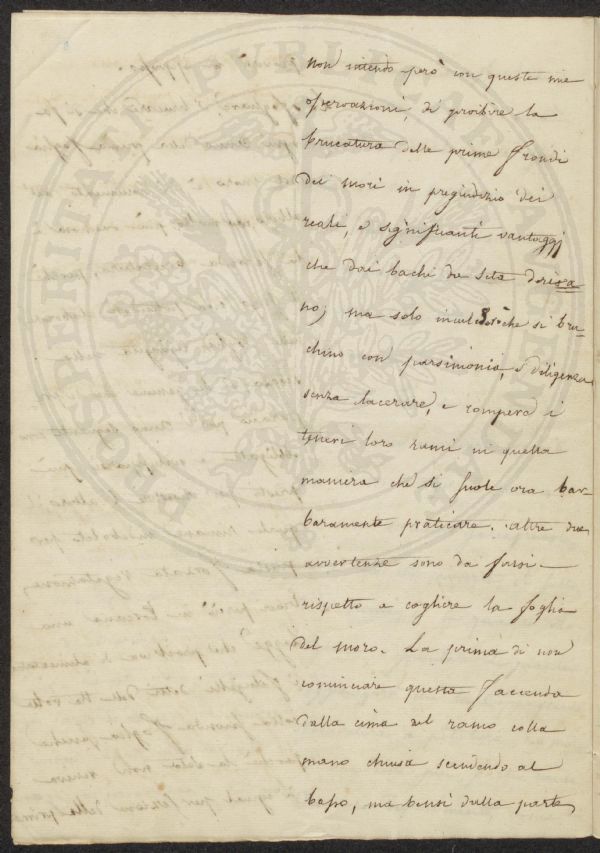 non intendo però con queste mie
osservazioni, di proibire la
brucatura delle prime frondi
dei mori in pregiudizio dei
reali, e significanti vantaggi
che dai bachi da seta deriva
no; ma solo che si bru-
chino con parsimonia, e diligenza
senza lacerare, e rompere i
teneri loro rami in quella
maniera che si suole ora bar-
baramente praticare. Altre due
avvertenze sono da farsi
rispetto a cogliere la foglia
del moro. La prima di non
cominciare questa faccenda
dalla cima del ramo colla
mano chiusa scendendo al
basso, ma bensì dalla parte
PROSPERITATI PVBLICAE AVGENDAE